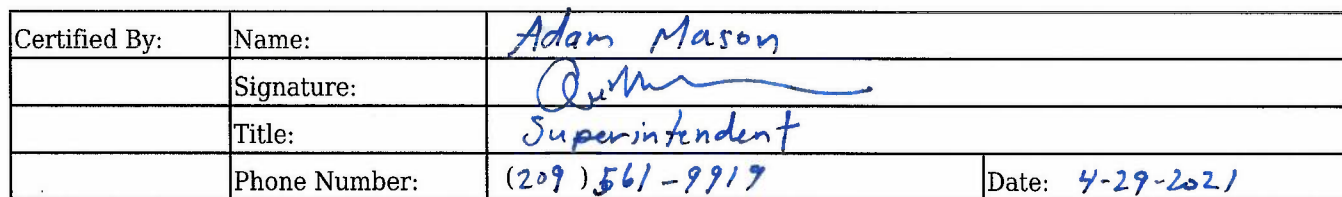 Certified By: Name: Adam Mason
Signature:
Title: Superintendent
Phone Number: (209 ) 561-9919 Date: 4-29-2021